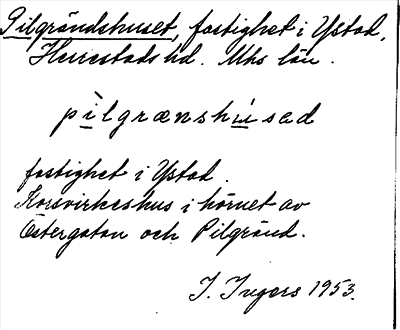 Pilgrändshuset, fastighet i Ystad,
Herrestads hd. Mhs län.
pìlgrænshúsəd
fastighet i Ystad.
Korsvirkeshus i hörnet av
Östergatan och Pilgränd.
I. Ingers 1953.